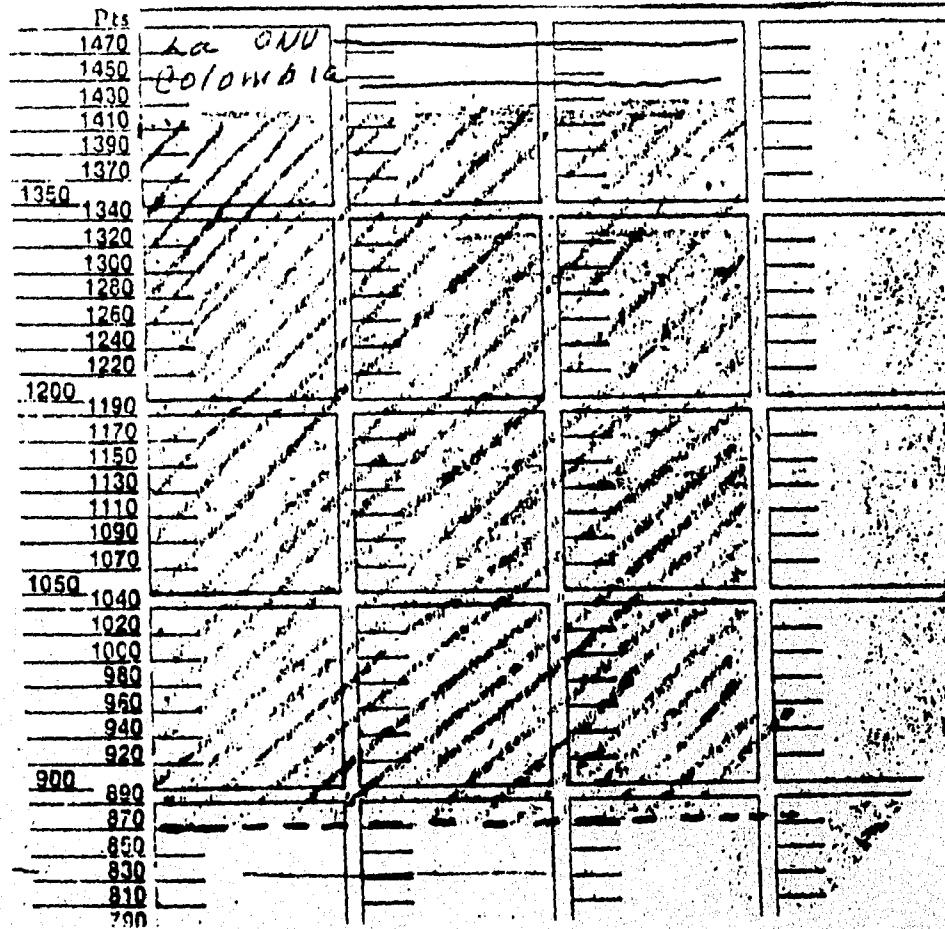 Pts
1470
La ONU
1450
Colombia
1430
1410
1390
1370
1350
1340
1320
1300
1280
1260
1240
1220
1200
1190
1170
1150
1130
1110
1090
1070
1050
1040
1020
1000
980
960
940
920
900
890
870
850
830
810
790